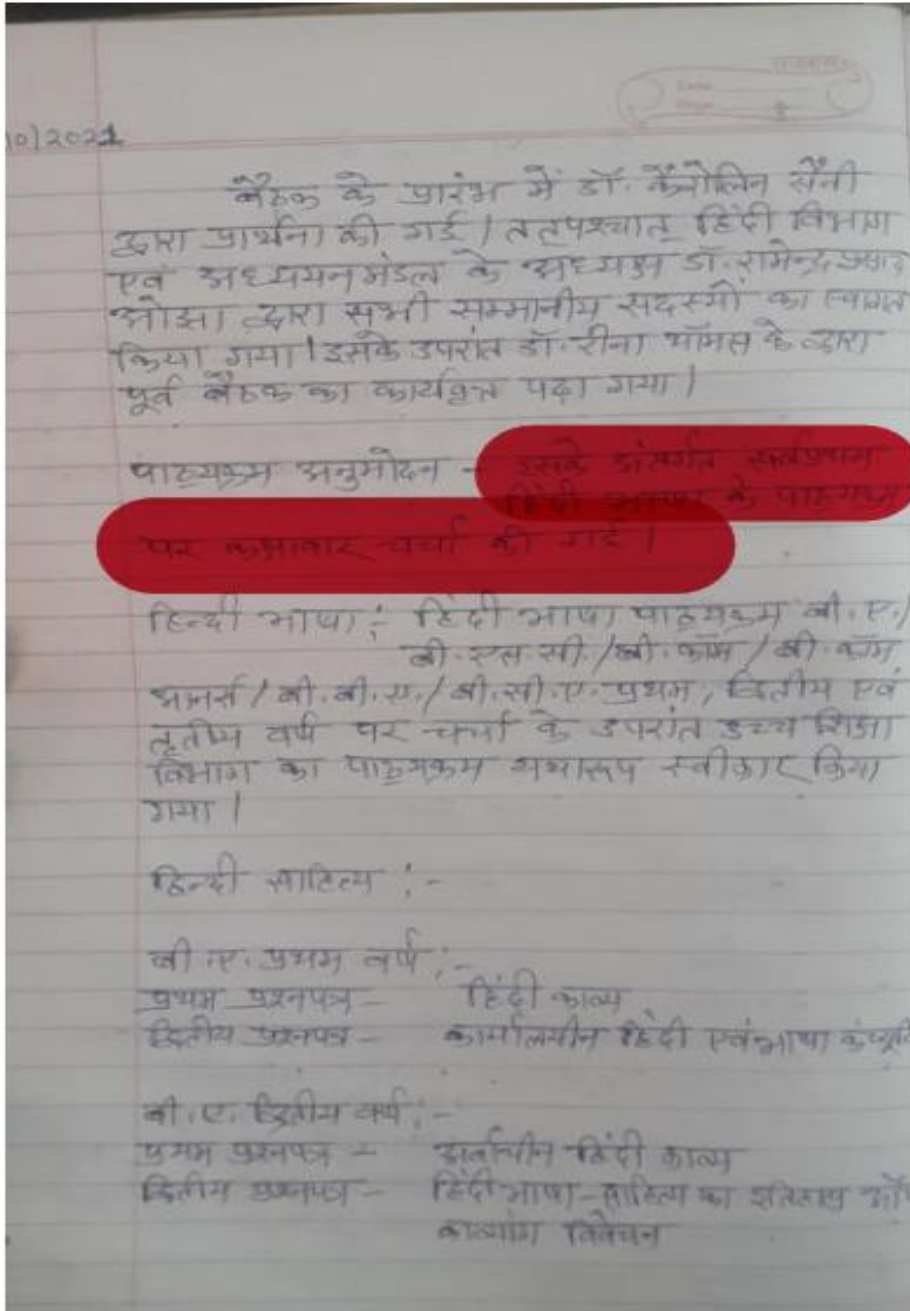 10)2021
बैठक के प्रारंभ में डॉ. कैरोलिन सैनी
द्वारा प्रार्थना की गई। तत्पश्चात् हिंदी विभाग
एवं अध्ययनमंडल के अध्यक्ष डॉ. रामेन्द्र प्रसाद
ओझा द्वारा सभी सम्मानीय सदस्यों का स्वागत
किया गया। इसके उपरांत डॉ. रीना थॉमस के द्वारा
पूर्व बैठक का कार्यवृत्त पढ़ा गया।
पाठ्यक्रम अनुमोदन - इसके अंतर्गत सर्वप्रथम
हिंदी भाषा के पाठ्यक्रम
पर कक्षावार चर्चा की गई।
हिन्दी भाषा :- हिंदी भाषा पाठ्यक्रम बी.ए./
बी.एस.सी./बी.कॉम/बी.कॉम
आनर्स/बी.बी.ए./बी.सी.ए. प्रथम, द्वितीय एवं
तृतीय वर्ष पर चर्चा के उपरांत उच्च शिक्षा
विभाग का पाठ्यक्रम यथारूप स्वीकार किया
गया।
हिन्दी साहित्य :-
बी.ए. प्रथम वर्ष :-
प्रथम प्रश्नपत्र - हिंदी काव्य
द्वितीय प्रश्नपत्र - कार्यालयीन हिंदी एवं भाषा
बी.ए. द्वितीय वर्ष :-
प्रथम प्रश्नपत्र - अर्वाचीन हिंदी काव्य
द्वितीय प्रश्नपत्र - हिंदी भाषा-साहित्य का इतिहास
काव्यांग विवेचन